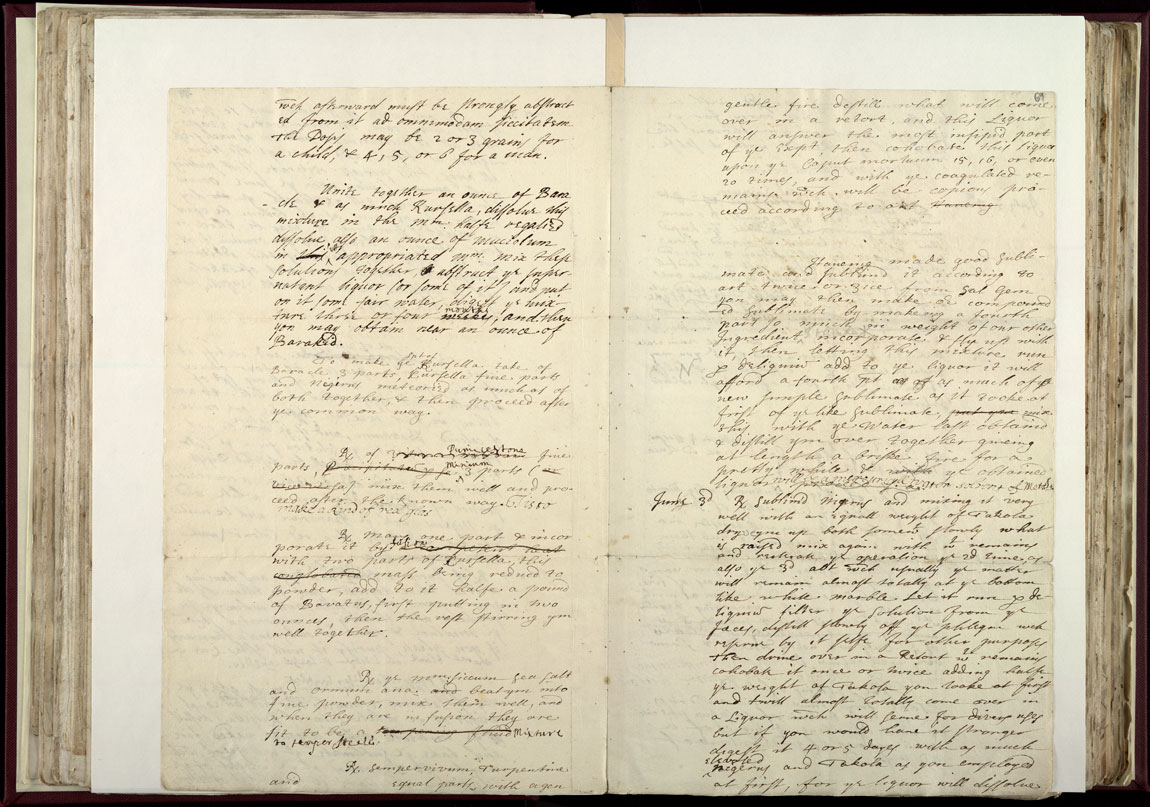 wch afterward must be strongly abstract
ed from it ad ommimodam siccitatem
The Dosis may be 2 or 3 grains for
a child, & 4, 5, or 6 for a man.
Unite together an ounce of Bara
cle & as much Kursella, dissolve this
mixture in the mn. halfe regalised
dissolve also an ounce of Mucolum
in this appropriated mm. mix these
solutions together abstract ye super
natant liquor (or some of it) and put
on it some fair water, digest ye mix
ture three or four weekes months, and then
you may obtain near an ounce of
Barakid.
To make ye Kursella take of
Baracle 3 parts, Kursella fine parts
and Negerus meteorised as much as of
both together, & then proceed after
ye common way.
Rx of Pumice stone fine
parts, Minium 3 parts
mix them well and pro
ceed after the known way. T'is to
make a kind of red glas
Rx Mars one part & incor
porate it by
with two parts of Kursella, this
conglobated mass being reduced to
powder, add to it halfe a pound
of Bavatus, first putting in two
ounces, then the rest stirring ym
well together.
Rx ye sea salt
and ormunt ana. and beat ym into
fine powder, mix them well, and
when they are in fusion they are
fit to be a Mixture
to temper steele
Rx Sempervivum, Turpentine
and equal parts, with a gen
69
gentle fire distill what will come
over in a retort, and this Liquor
will answer the most insipid part
of ye Expt. then cohobate this liquor
upon ye Caput mortuum 15, 16, or even
20 times, and with ye coagulated re-
mains wch will be copious pro-
ceed according to art Haveing
Haveing made good Subli-
mate and sublim'd it according to
art twice or 3ice from Sal Gem
you may then make a compound
ed sublimate by makeing a fourth
part so much in weight of our other
Ingredient, incorporate & fly up with
it, then letting this mixture run
p deliquiu add to ye liquor it will
afford a fourth pt as of as much of ye
new simple sublimate as it tooke at
first of ye like sublimate, put you mix
this with ye Water last obtaind
& distill ym over together giveing
at length a briske fire for a
pretty while & ye obtained
liquor will
June 3d Rx sublim'd Negerus and mixing it very
well with an equall weight of Takola
drive ym up both somewt slowly what
is raised mix again with wt remains
and reiterate ye operation ye 2d time, as
also ye 3d aft wch usually ye matter
will remain almost totally at ye bottom
like white marble Let it run p de-
liquiu filter ye solution from ye
faeces, distill slowly off ye phlegm wch
reserve by it selfe for other purposes
Then drive over in a Retort wt remains
cohobate it once or twice adding halfe
ye weight of Takola you tooke at first
and twill almost totally come over in
a Liquor wch will serve for divers uses
but if you would have it stronger
digest it 4 or 5 dayes with as much
elevated
Negerus and Takola as you employed
at first, for ye liquor will dissolve